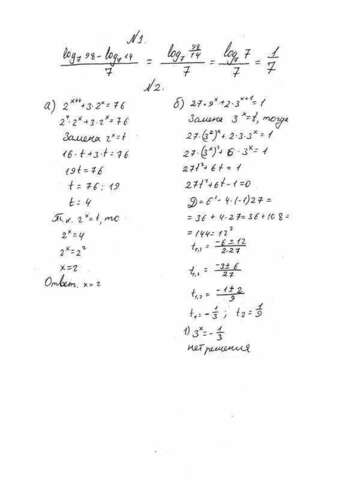 №1.
log₇ 98 - log₇ 14 / 7 = log₇ 98/14 / 7 = log₇ 7 / 7 = 1/7
№2.
а) 2ˣ⁺⁴ + 3·2ˣ = 76
2⁴·2ˣ + 3·2ˣ = 76
Замена 2ˣ = t
16·t + 3·t = 76
19t = 76
t = 76 : 19
t = 4
Т.к. 2ˣ = t, то
2ˣ = 4
2ˣ = 2²
x = 2
Ответ. x = 2
б) 27·9ˣ + 2·3ˣ⁺¹ = 1
Замена 3ˣ = t, тогда
27·(3²)ˣ + 2·3·3ˣ = 1
27·(3ˣ)² + 6·3ˣ = 1
27t² + 6t = 1
27t² + 6t - 1 = 0
D = 6² - 4·(-1)27 =
= 36 + 4·27 = 36 + 108 =
= 144 = 12²
t₁,₂ = -6 ± 12 / 2·27
t₁,₂ = -3 ± 6 / 27
t₁,₂ = -1 ± 2 / 9
t₁ = -1/3 ; t₂ = 1/9
1) 3ˣ = -1/3
нет решения